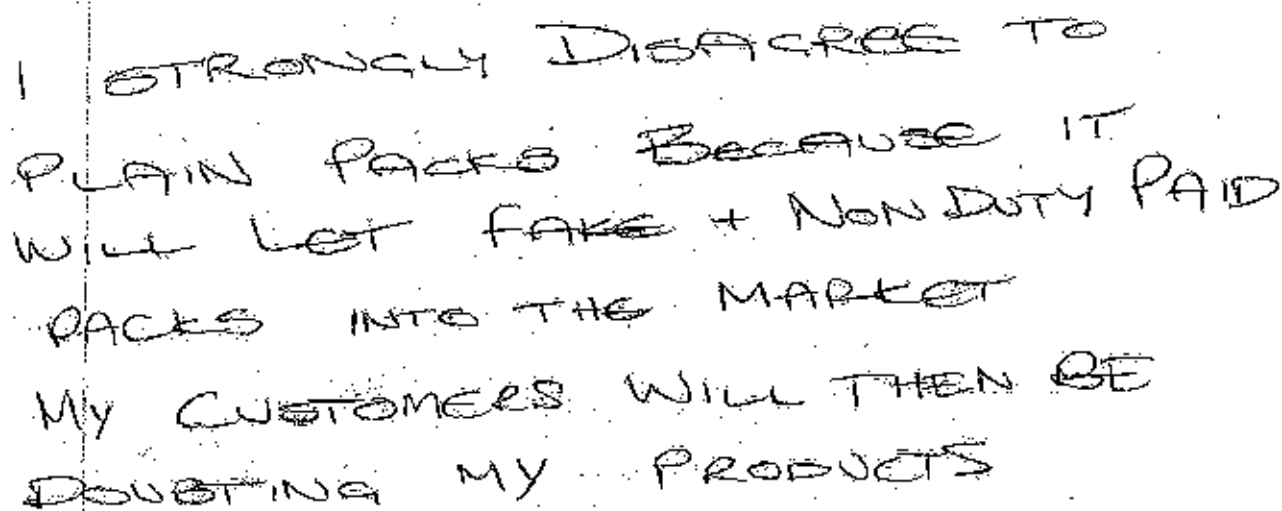 I STRONGLY DISAGREE TO
PLAIN PACKS BECAUSE IT
WILL LET FAKE + NON DUTY PAID
PACKS INTO THE MARKET
MY CUSTOMERS WILL THEN BE
DOUBTING MY PRODUCTS